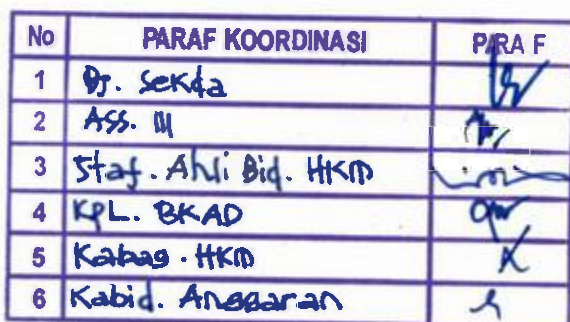 No PARAF KOORDINASI PARA F
1 Pj. Sekda
2 ASS. III
3 Staf. Ahli Bid. HKM
4 KPL. BKAD
5 Kabag. HKM
6 Kabid. Anggaran